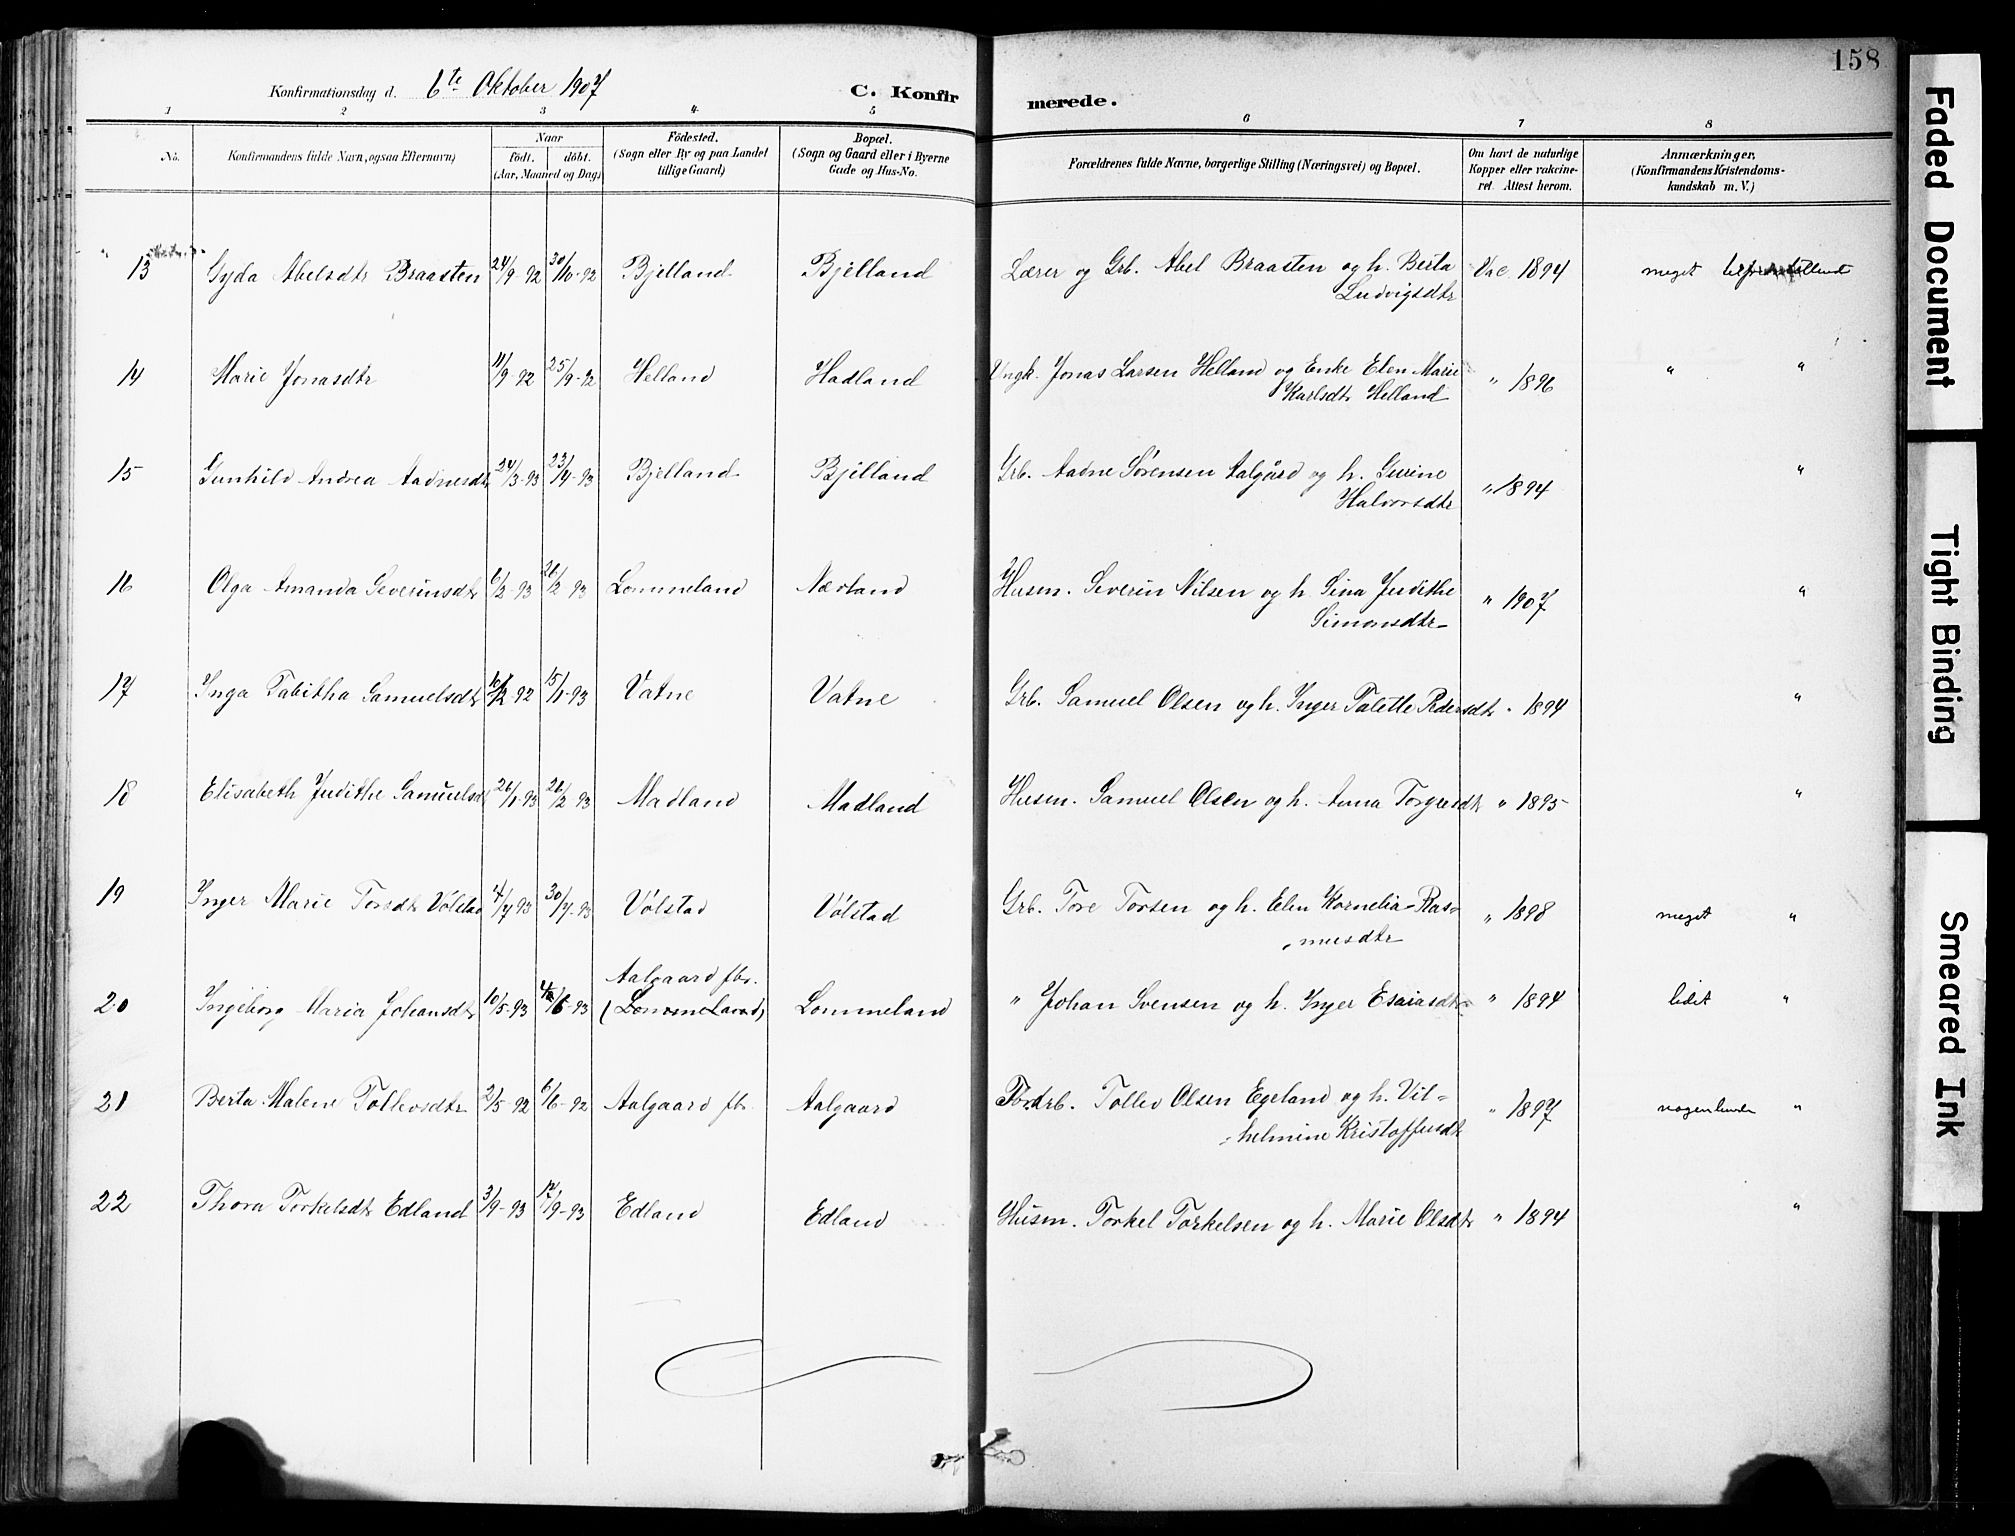 158
Konfirmationsdag d. 6te Oktober 1907 C. Konfirmerede.
1 2 3 4 5 6 7 8
No.
Konfirmandens fulde Navn, ogsaa Efternavn)
Naar
födt. döbt.
(Aar, Maaned og Dag)
Födested.
(Sogn eller By og paa Landet
tillige Gaard)
Bopæl.
(Sogn og Gaard eller i Byerne
Gade og Hus-No.
Forældrenes fulde Navne, borgerlige Stilling (Næringsvei) og Bopæl.
Om havt de naturlige
Kopper eller vakcine-
ret. Attest herom.
Anmærkninger,
(Konfirmandens Kristendoms-
kundskab m. V.)
13 Gyda Abelsdtr Braasten 24/9-92 30/10-92 Bjelland Bjelland Lærer og Grb. Abel Braasten og h. Berta Vac. 1894 meget
Ludvigsdtr
14 Marie Jonasdtr 11/9-92 25/9-92 Helland Hadland Ungk. Jonas Larsen Helland og Enke Elen Marie " 1896 " "
Karlsdtr Helland
15 Gunhild Andrea Aadnesdtr 24/3-93 23/4-93 Bjelland Bjelland Grb. Aadne Sörensen Aalgård og h. Gurine " 1894 "
Halvorsdtr
16 Olga Amanda Severinsdtr 6/2-93 26/2 93 Lommeland Nærland Husm. Severin Nilsen og h Sina Judithe " 1907 "
Simonsdtr
17 Inga Tabitha Samuelsdtr 10/12 92 15/1-93 Vatne Vatne Grb. Samuel Olsen og h. Inger Talette Pedersdtr " 1894 "
18 Elisabeth Judithe Samuelsdtr 26/1-93 26/2 93 Madland Madland Husm. Samuel Olsen og h. Anna Torgersdtr " 1895 "
19 Inger Marie Torsdtr Völstad 4/7 93 30/7-93 Völstad Völstad Grb. Tore Torsen og h. Elen Kornelia Ras= " 1898 meget "
musdtr
20 Ingeborg Maria Johansdtr 10/5-93 4/6-93 Aalgaard fbr. (Lommeland) Lommeland " Johan Svensen og h. Inger Esaiasdtr " 1894 lidet "
21 Berta Malene Tollevsdtr 2/5-92 6/6-92 Aalgaard fbr. Aalgaard Tollev Olsen Egeland og h. Vil= " 1897 nogenlunde "
helmine Kristoffersdtr
22 Thora Torkelsdtr Edland 3/9-93 17/9-93 Edland Edland Husm. Torkel Torkelsen og h. Marie Olsdtr " 1894 "
Faded Document
Tight Binding
Smeared Ink